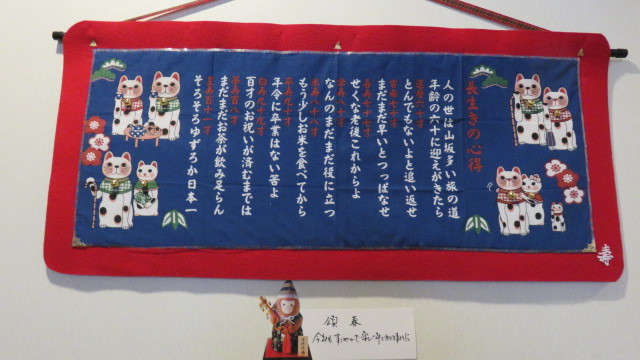 長生きの心得
人の世は山坂多い旅の道
年齢の六十に迎えがきたら
還暦六十才
とんでもないよと追い返せ
古寿七十才
まだまだ早いとつっぱなせ
喜寿七十七才
せくな老後これからよ
傘寿八十才
なんのまだまだ役に立つ
米寿八十八才
もう少しお米を食べてから
卒寿九十才
年令に卒業はない筈よ
白寿九十九才
百才のお祝いが済むまでは
茶寿百八才
まだまだお茶が飲み足らん
皇寿百十一才
そろそろゆずろか日本一
寿
頌春